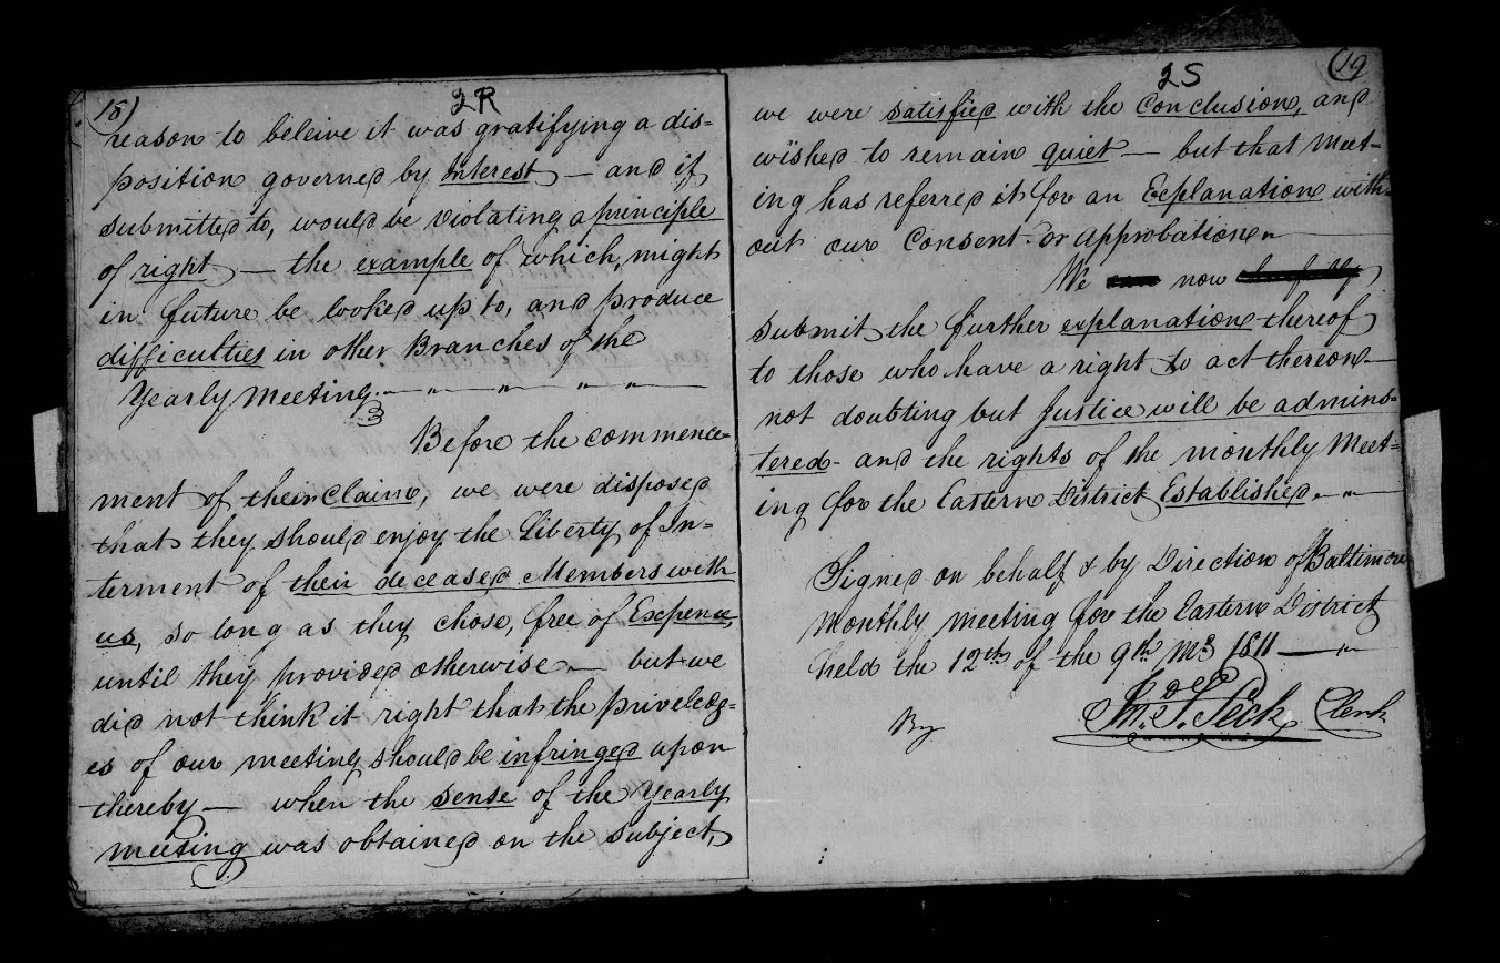 18)
2R
reason to beleive it was gratifying a dis=
position governed by Interest — and if
submitted to, would be violating a principle
of right — the example of which, might
in future be looked up to, and produce
difficulties in other Branches of the
Yearly Meeting.
3
Before the commence=
ment of their claim, we were disposed
that they should enjoy the Liberty of In=
terment of their deceased Members with
us, so long as they chose, free of Expence,
until they provided otherwise — but we
did not think it right that the priveledg=
es of our meeting should be infringed upon
thereby — when the sense of the Yearly
meeting was obtained on the subject,
2S
(19
we were satisfied with the Conclusion, and
wished to remain quiet — but that Meet-
ing has referred it for an Explanation with-
out our Consent or approbation
We now
submit the further explanation thereof
to those who have a right to act thereon —
not doubting but Justice will be adminis-
tered - and the rights of the monthly Meet=
ing for the Eastern District Established
Signed on behalf & by Direction of Baltimore
Monthly Meeting for the Eastern District
held the 12th of the 9th Mo 1811
By
Clerk